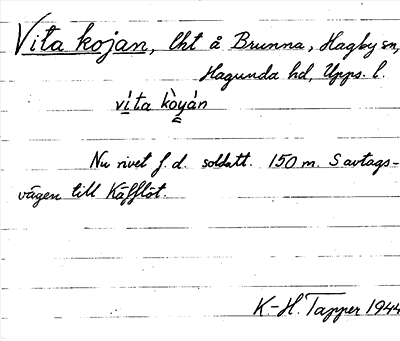 Vita kojan, lht å Brunna, Hagby sn,
Hagunda hd, Upps. l.
ví̱ta kò̱yán
Nu rivet f.d. soldatt. 150 m. S avtags-
vägen till Käfflöt.
K.-H. Tapper 1944